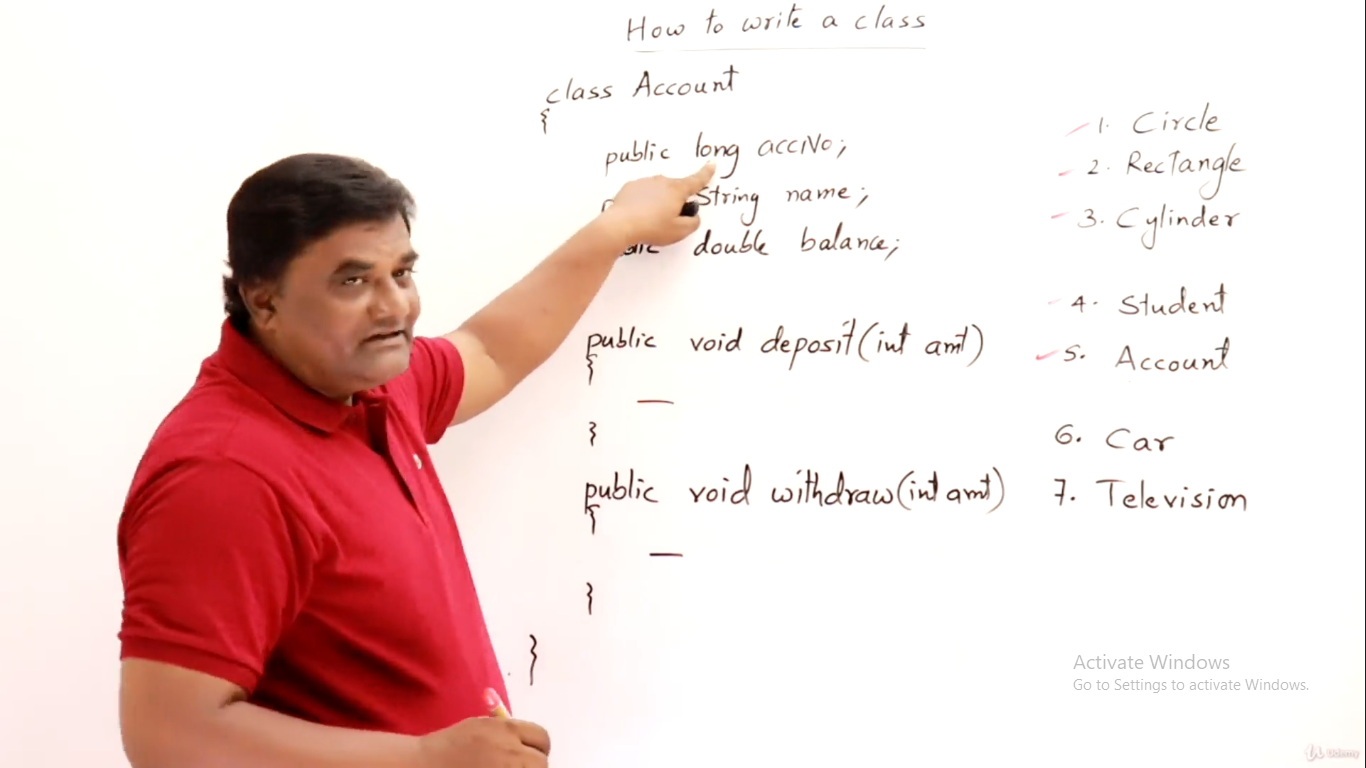 How to write a class
class Account
{
public long accNo;
String name;
double balance;
public void deposit(int amt)
{
}
public void withdraw(int amt)
{
}
}
1. Circle
2. Rectangle
3. Cylinder
4. Student
5. Account
6. Car
7. Television
Activate Windows
Go to Settings to activate Windows.
Udemy